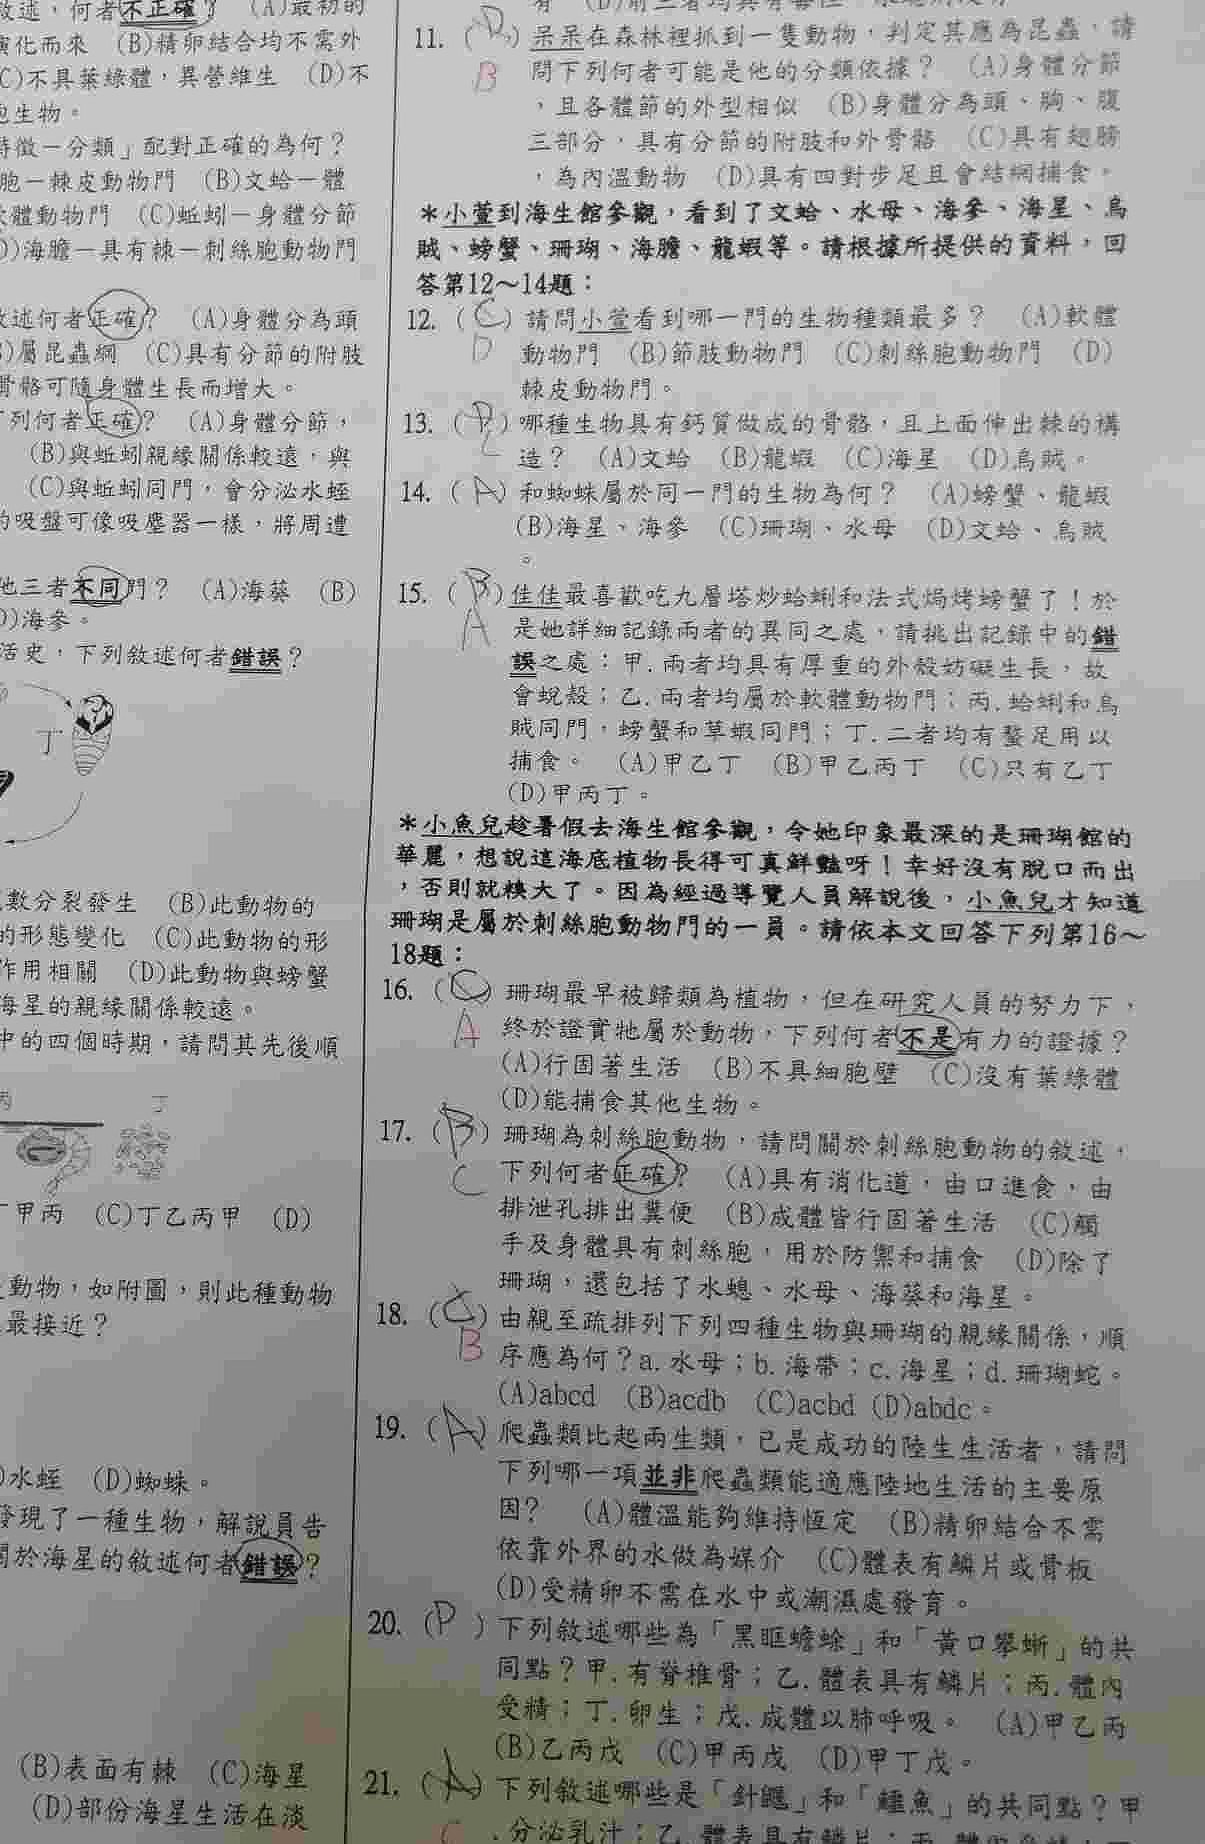 敘述，何者不正確？ (A)最初的
演化而來 (B)精卵結合均不需外
(C)不具葉綠體，異營維生 (D)不
胞生物。
特徵－分類」配對正確的為何？
胞－棘皮動物門 (B)文蛤－體
軟體動物門 (C)蚯蚓－身體分節
D)海膽－具有棘－刺絲胞動物門
敘述何者正確？ (A)身體分為頭
B)屬昆蟲綱 (C)具有分節的附肢
骨骼可隨身體生長而增大。
下列何者正確？ (A)身體分節，
(B)與蚯蚓親緣關係較遠，與
(C)與蚯蚓同門，會分泌水蛭
的吸盤可像吸塵器一樣，將周遭
他三者不同門？ (A)海葵 (B)
D)海參。
活史，下列敘述何者錯誤？
丁
數分裂發生 (B)此動物的
的形態變化 (C)此動物的形
作用相關 (D)此動物與螃蟹
海星的親緣關係較遠。
中的四個時期，請問其先後順
丙 丁
丁甲丙 (C)丁乙丙甲 (D)
動物，如附圖，則此種動物
最接近？
)水蛭 (D)蜘蛛。
發現了一種生物，解說員告
關於海星的敘述何者錯誤？
(B)表面有棘 (C)海星
(D)部份海星生活在淡
11. (D) 呆呆在森林裡抓到一隻動物，判定其應為昆蟲，請
B 問下列何者可能是他的分類依據？ (A)身體分節
，且各體節的外型相似 (B)身體分為頭、胸、腹
三部分，具有分節的附肢和外骨骼 (C)具有翅膀
，為內溫動物 (D)具有四對步足且會結網捕食。
＊小萱到海生館參觀，看到了文蛤、水母、海參、海星、烏
賊、螃蟹、珊瑚、海膽、龍蝦等。請根據所提供的資料，回
答第12～14題：
12. (C) 請問小萱看到哪一門的生物種類最多？ (A)軟體
D 動物門 (B)節肢動物門 (C)刺絲胞動物門 (D)
棘皮動物門。
13. (D) 哪種生物具有鈣質做成的骨骼，且上面伸出棘的構
C 造？ (A)文蛤 (B)龍蝦 (C)海星 (D)烏賊。
14. (A) 和蜘蛛屬於同一門的生物為何？ (A)螃蟹、龍蝦
(B)海星、海參 (C)珊瑚、水母 (D)文蛤、烏賊
。
15. (B) 佳佳最喜歡吃九層塔炒蛤蜊和法式焗烤螃蟹了！於
A 是她詳細記錄兩者的異同之處，請挑出記錄中的錯
誤之處：甲.兩者均具有厚重的外殼妨礙生長，故
會蛻殼；乙.兩者均屬於軟體動物門；丙.蛤蜊和烏
賊同門，螃蟹和草蝦同門；丁.二者均有螯足用以
捕食。 (A)甲乙丁 (B)甲乙丙丁 (C)只有乙丁
(D)甲丙丁。
＊小魚兒趁暑假去海生館參觀，令她印象最深的是珊瑚館的
華麗，想說這海底植物長得可真鮮豔呀！幸好沒有脫口而出
，否則就糗大了。因為經過導覽人員解說後，小魚兒才知道
珊瑚是屬於刺絲胞動物門的一員。請依本文回答下列第16～
18題：
16. ( ) 珊瑚最早被歸類為植物，但在研究人員的努力下，
A 終於證實牠屬於動物，下列何者不是有力的證據？
(A)行固著生活 (B)不具細胞壁 (C)沒有葉綠體
(D)能捕食其他生物。
17. (B) 珊瑚為刺絲胞動物，請問關於刺絲胞動物的敘述，
C 下列何者正確？ (A)具有消化道，由口進食，由
排泄孔排出糞便 (B)成體皆行固著生活 (C)觸
手及身體具有刺絲胞，用於防禦和捕食 (D)除了
珊瑚，還包括了水螅、水母、海葵和海星。
18. (C) 由親至疏排列下列四種生物與珊瑚的親緣關係，順
B 序應為何？a.水母；b.海帶；c.海星；d.珊瑚蛇。
(A)abcd (B)acdb (C)acbd (D)abdc。
19. (A) 爬蟲類比起兩生類，已是成功的陸生生活者，請問
下列哪一項並非爬蟲類能適應陸地生活的主要原
因？ (A)體溫能夠維持恆定 (B)精卵結合不需
依靠外界的水做為媒介 (C)體表有鱗片或骨板
(D)受精卵不需在水中或潮濕處發育。
20. (D) 下列敘述哪些為「黑眶蟾蜍」和「黃口攀蜥」的共
同點？甲.有脊椎骨；乙.體表具有鱗片；丙.體內
受精；丁.卵生；戊.成體以肺呼吸。 (A)甲乙丙
(B)乙丙戊 (C)甲丙戊 (D)甲丁戊。
21. (A) 下列敘述哪些是「針鼴」和「鱷魚」的共同點？甲
C .分泌乳汁；乙.體表具有鱗片；丙.